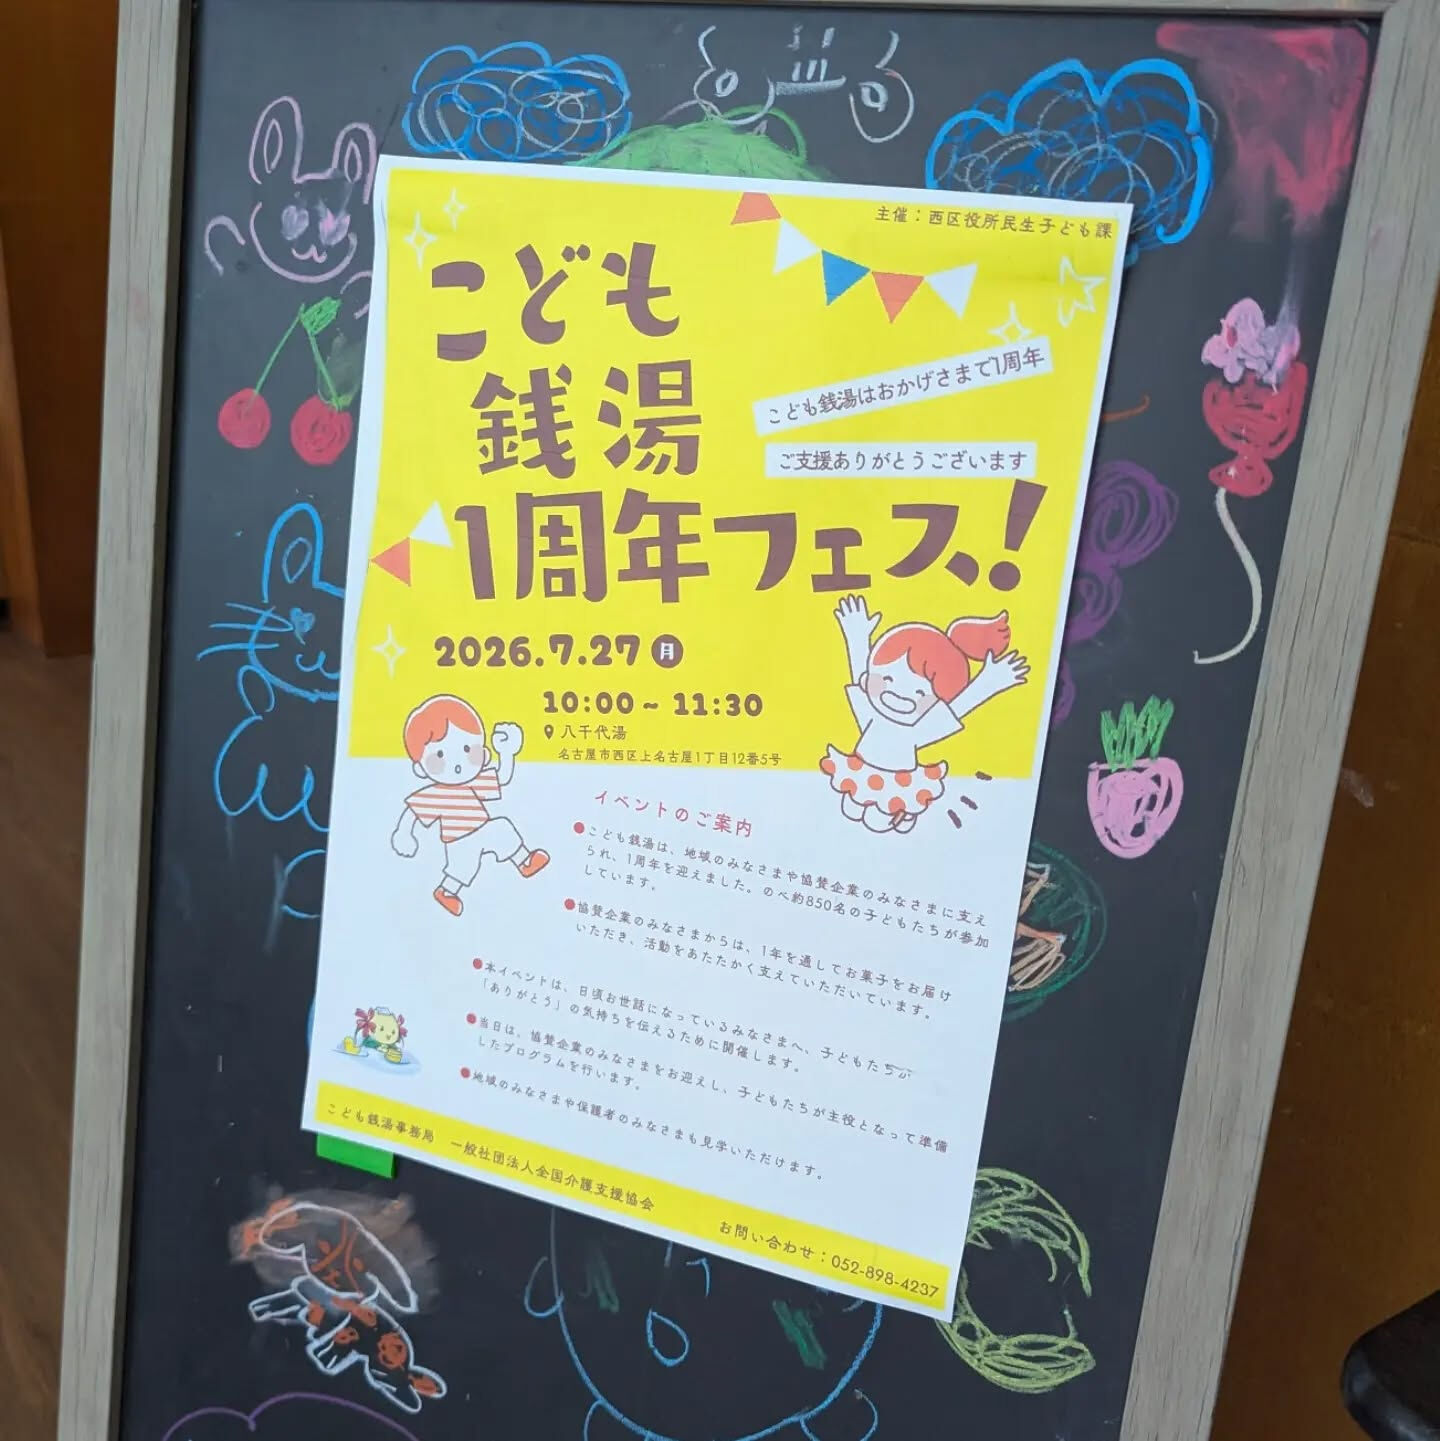 主催：西区役所民生子ども課
こども
銭湯
1周年フェス!
こども銭湯はおかげさまで1周年
ご支援ありがとうございます
2026.7.27 月
10:00~ 11:30
八千代湯
名古屋市西区上名古屋1丁目12番5号
イベントのご案内
●こども銭湯は、地域のみなさまや協賛企業のみなさまに支え
られ、1周年を迎えました。のべ約850名の子どもたちが参加
しています。
●協賛企業のみなさまからは、1年を通してお菓子をお届け
いただき、活動をあたたかく支えていただいています。
●本イベントは、日頃お世話になっているみなさまへ、子どもたちが
「ありがとう」の気持ちを伝えるために開催します。
●当日は、協賛企業のみなさまをお迎えし、子どもたちが主役となって準備
したプログラムを行います。
●地域のみなさまや保護者のみなさまも見学いただけます。
こども銭湯事務局 一般社団法人全国介護支援協会
お問い合わせ：052-898-4237